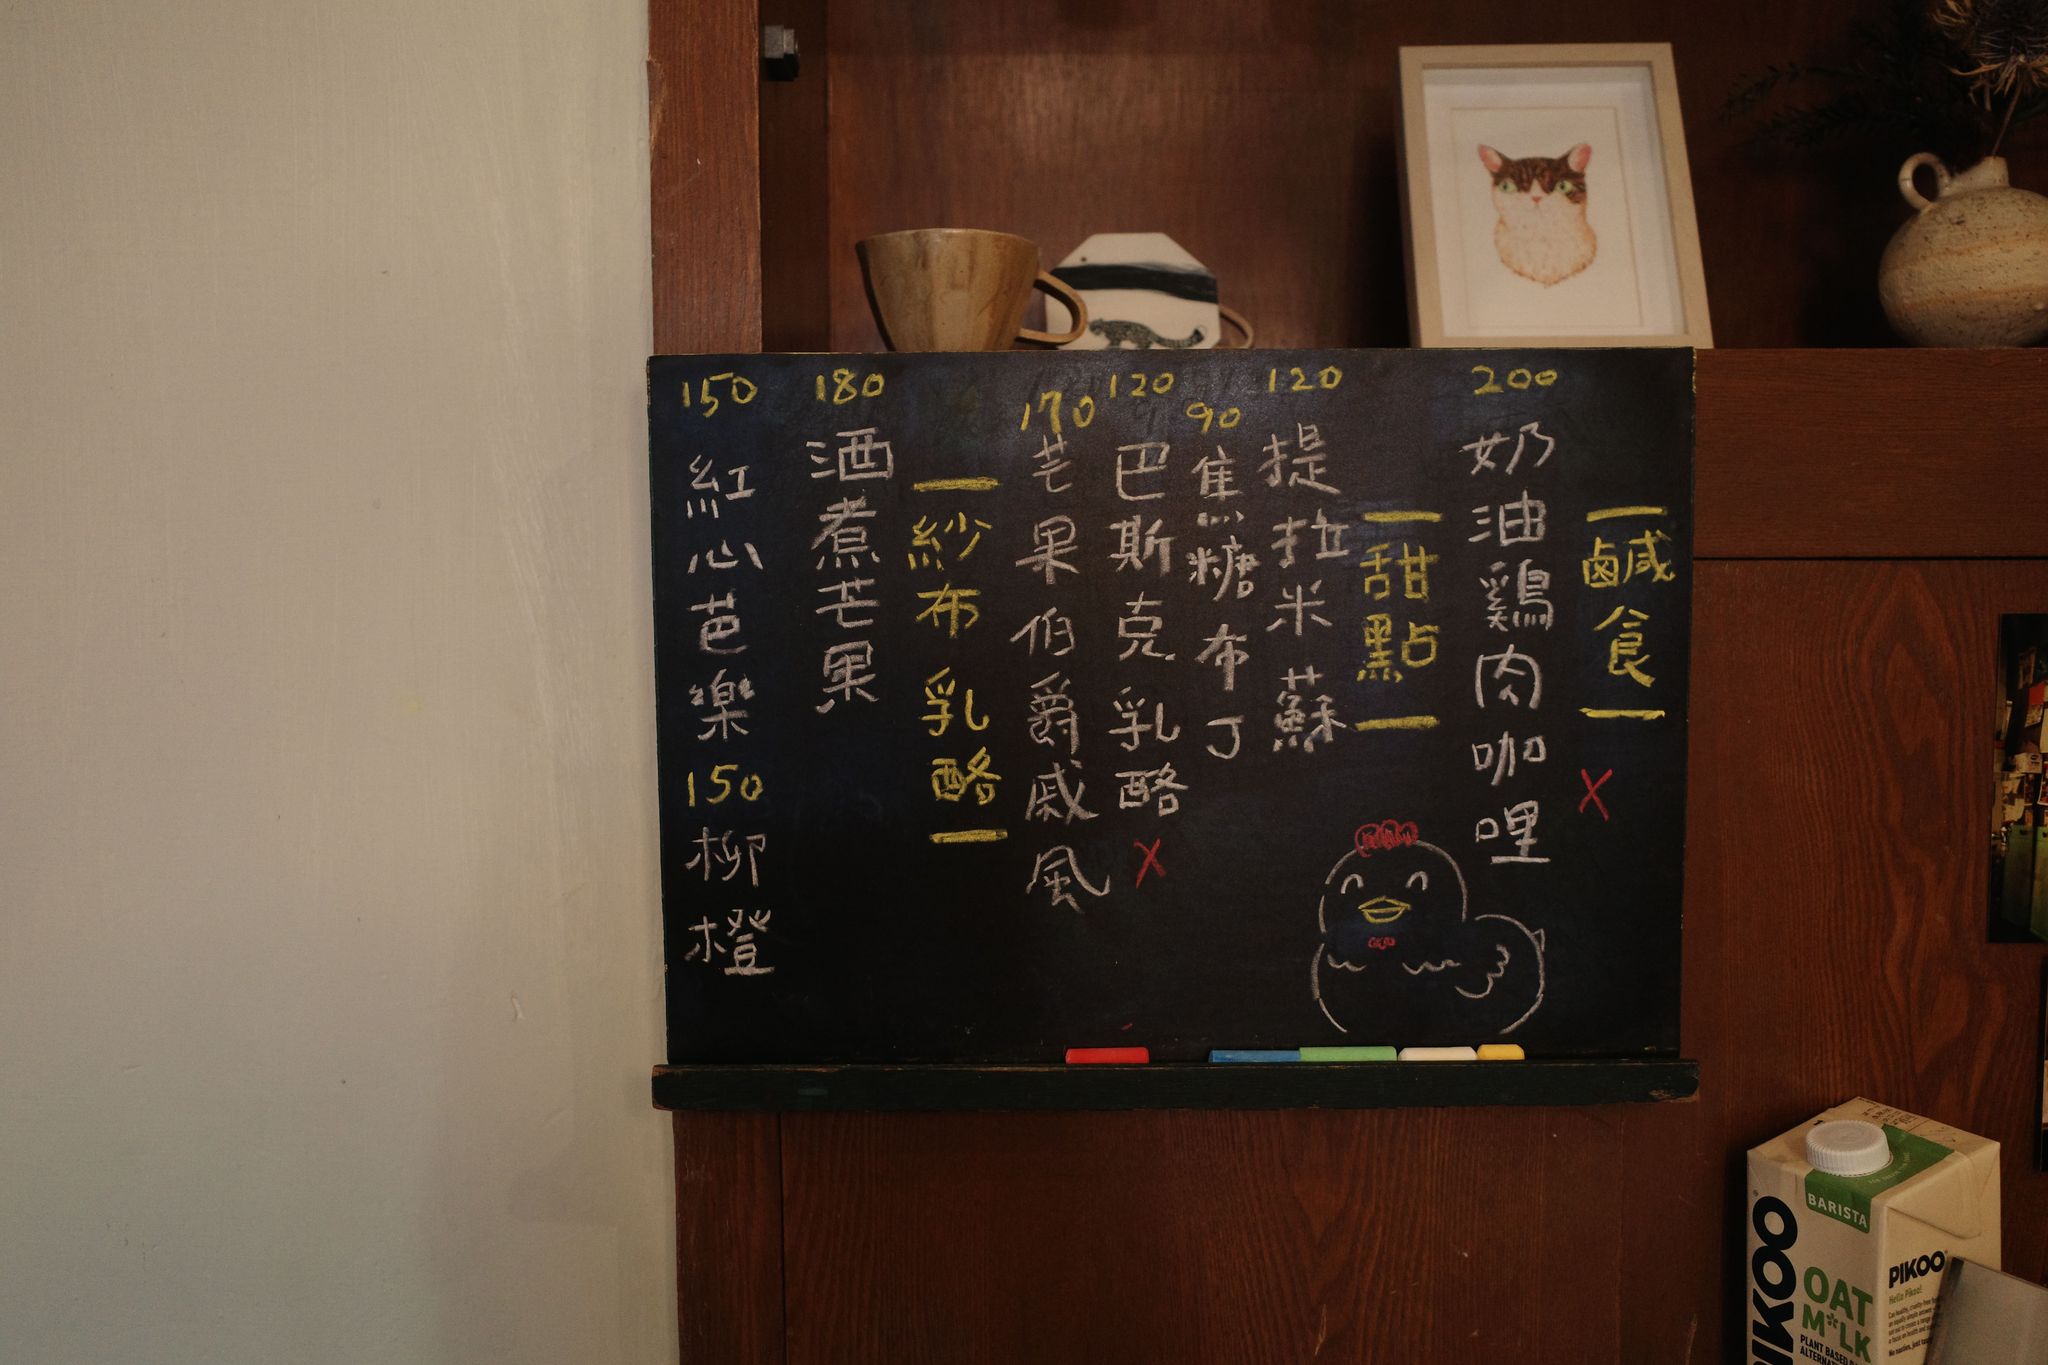 鹹食
X
200
奶油鷄肉咖哩
甜點
120
提拉米蘇
90
焦糖布丁
120
巴斯克乳酪
X
170
芒果伯爵戚風
紗布乳酪
180
酒煮芒果
150
紅心芭樂
150
柳橙
BARISTA
PIKOO
OAT
M*LK
PLANT BASED
PIKOO
Hello Pikoo!